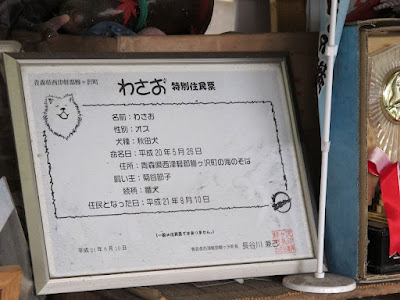 青森県西津軽郡鰺ヶ沢町
わさお 特別住民票
名前：わさお
性別：オス
犬種：秋田犬
命名日：平成20年5月25日
住所：青森県西津軽郡鰺ヶ沢町の海のそば
飼い主：菊谷節子
続柄：番犬
住民となった日：平成21年8月10日
(一般は住民票ではありません。)
平成21年8月10日
青森県西津軽郡鰺ヶ沢町長 長谷川 兼己